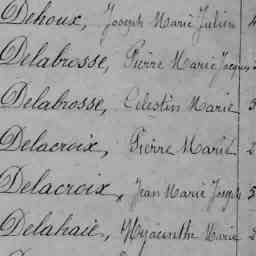 Dehoux, Joseph Marie Julien 4
Delabrosse, Pierre Marie Jacques
Delabrosse, Célestin Marie 3
Delacroix, Pierre Marie 2
Delacroix, Jean Marie Joseph 5
Delahaie, Hyacinthe Marie 2